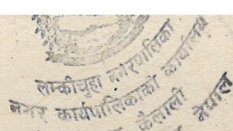 लम्कीचुहा नगरपालिका
नगर कार्यपालिकाको कार्यालय
कैलाली
नेपाल